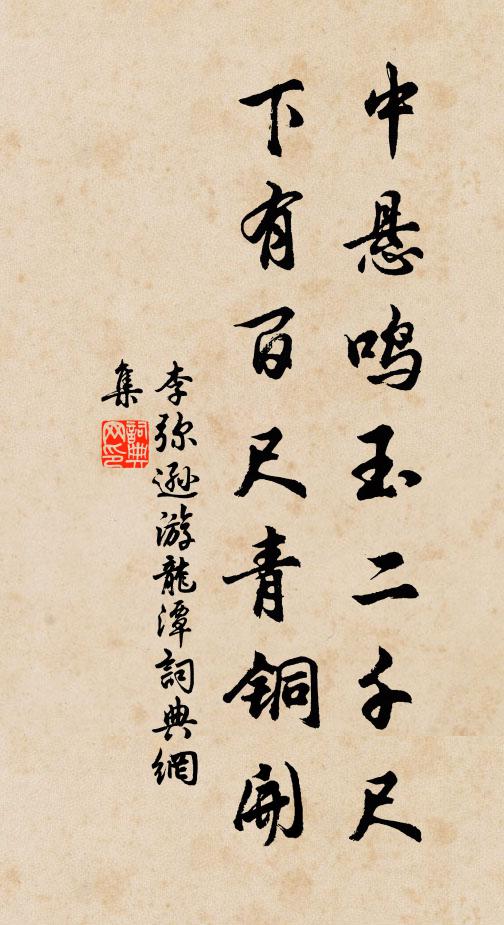 中悬鸣玉二千尺
下有百尺青铜开
李弥逊游龍潭詞典網
集
詞典
网印